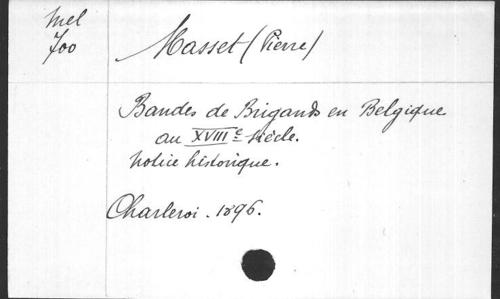 Mel
700
Masset (Pierre)
Bandes de Brigands en Belgique
au XVIIIe siècle.
Notice historique.
Charleroi. 1896.